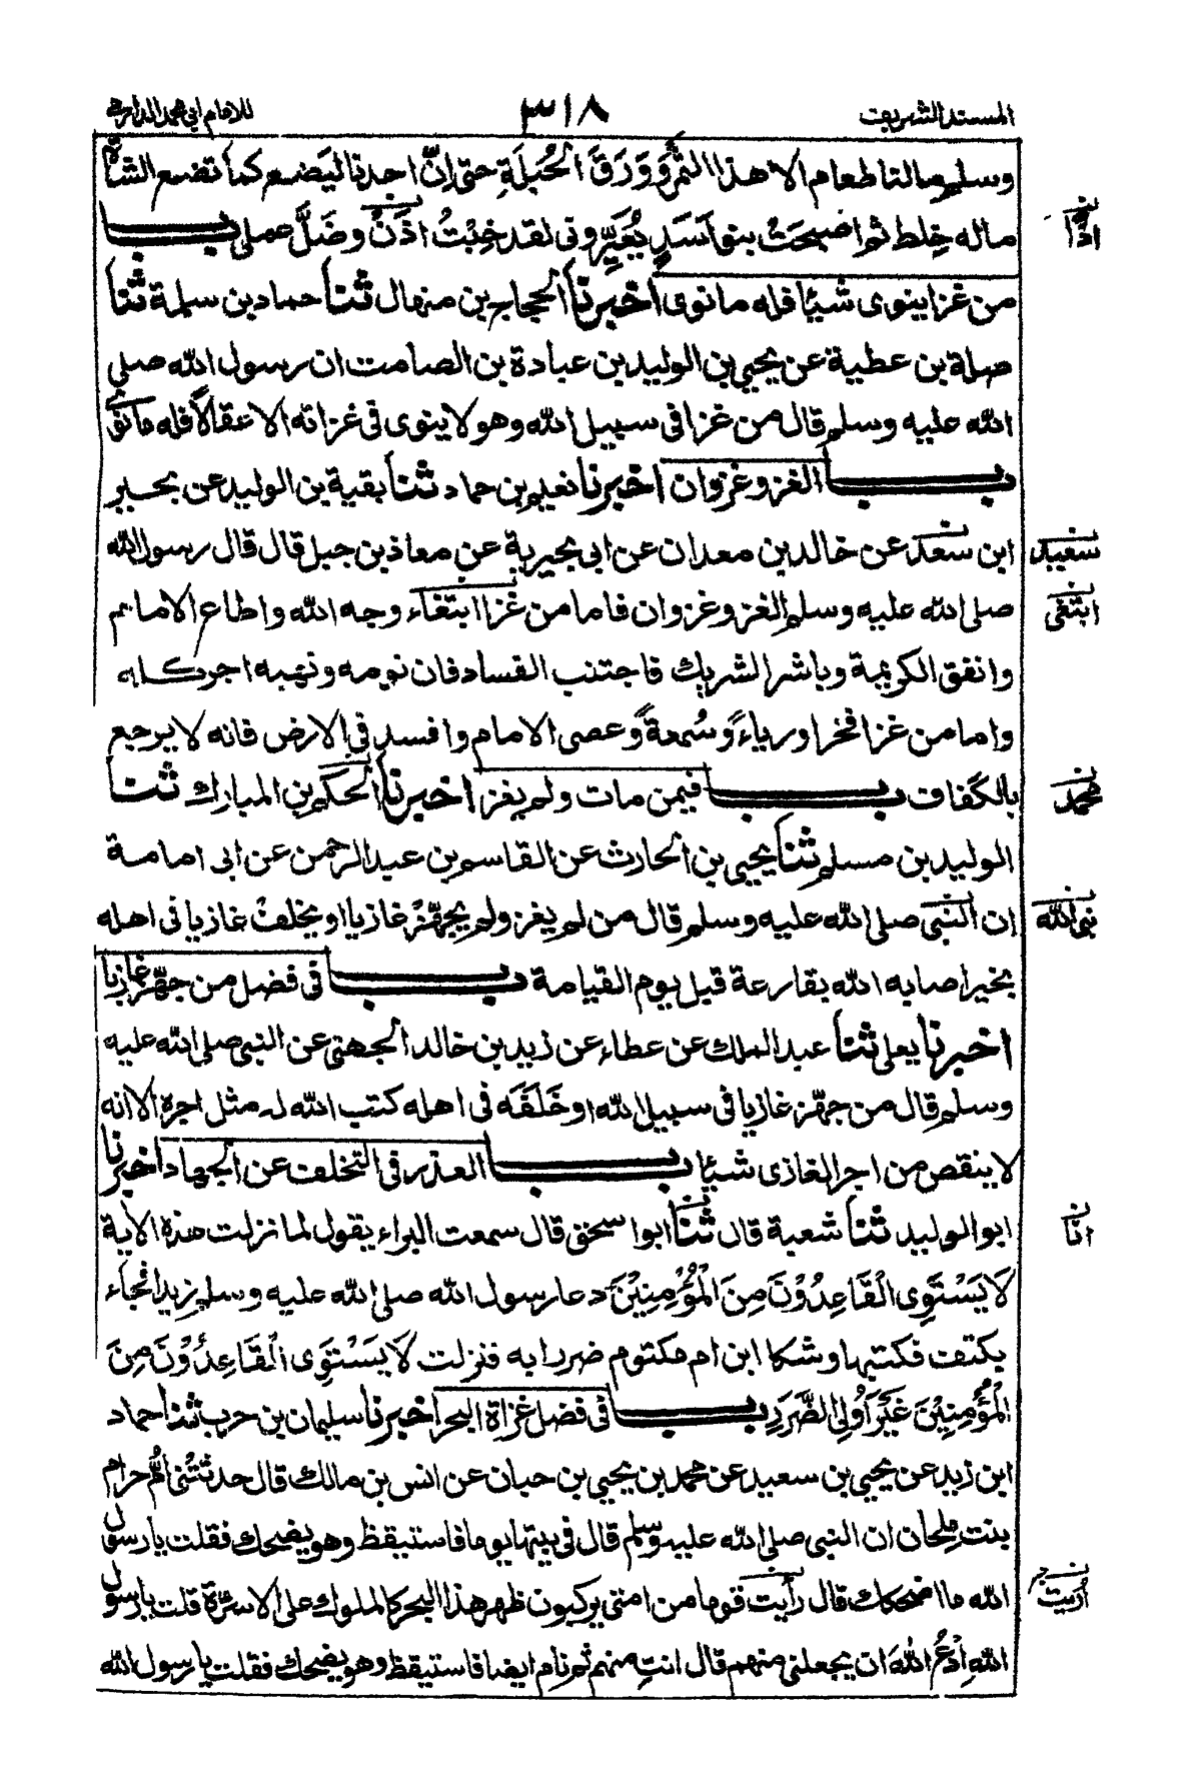 المسند الشريف
٣١٨
للامام ابي محمد الدارمي
وسلم مالنا طعام الا هذا السَّمُرَ وَوَرَقَ الحُبُلَةِ حتى اِنَّ احدنا ليَضع كما تضع الشاة
ماله خِلط ثم اصْبحَتْ بنو اَسَدٍ يُعَيِّرُوني لقد خِبْتُ اذَنْ وضَلَّ عملي بــــاب
من غزا ينوى شيئا فله ما نوى اخبرنا الحجاج بن منهال ثنا حماد بن سلمة ثنا
جبلة بن عطية عن يحيى بن الوليد بن عبادة بن الصامت ان رسول الله صلى
الله عليه وسلم قال من غزا في سبيل الله وهو لا ينوى في غزاته الا عقالاً فله ما نوى
بــــاب الغزو غزوان اخبرنا نعيم بن حماد ثنا بقية بن الوليد عن بحير
ابن سعد عن خالد بن معدان عن ابي بحيرية عن معاذ بن جبل قال قال رسول الله
صلى الله عليه وسلم الغزو غزوان فاما من غزا ابتغاء وجه الله واطاع الامام
وانفق الكريمة وياشر الشريك فاجتنب الفساد فان نومه ونبهه اجر كله
واما من غزا فخرا ورياءً وسُمعةً وعصى الامام وافسد في الارض فانه لا يرجع
بالكَفاف بــــاب فيمن مات ولم يغز اخبرنا الحكم بن المبارك ثنا
الوليد بن مسلم ثنا يحيى بن الحارث عن القاسم بن عبد الرحمن عن ابي امامة
ان النبي صلى الله عليه وسلم قال من لم يغز ولم يجهّزْ غازيا او يخلفْ غازيا في اهله
بخير اصابه الله بقارعة قبل يوم القيامة بــــاب في فضل من جهّز غازيا
اخبرنا يعلى ثنا عبد الملك عن عطاء عن زيد بن خالد الجهني عن النبي صلى الله عليه
وسلم قال من جهّز غازيا في سبيل الله او خَلَفَه في اهله كتب الله له مثل اجره الا انه
لا ينقص من اجر الغازى شيئا بــــاب العذر في التخلف عن الجهاد اخبرنا
ابو الوليد ثنا شعبة قال ثنا ابو اسحق قال سمعت البراء يقول لما نزلت هذه الاية
لَا يَسْتَوِى الْقَاعِدُوْنَ مِنَ الْمُؤْمِنِيْنَ دعا رسول الله صلى الله عليه وسلم زيدا فجاء
بكتف فكتبها وشكا ابن ام مكتوم ضررا به فنزلت لَا يَسْتَوِى الْقَاعِدُوْنَ مِنَ
الْمُؤْمِنِيْنَ غَيْرَ اُولِى الضَّرَرِ بــــاب في فضل غزاة البحر اخبرنا سليمان بن حرب ثنا حماد
ابن زيد عن يحيى بن سعيد عن محمد بن يحيى بن حبان عن انس بن مالك قال حدثتني اُمّ حرام
بنت مِلحان ان النبي صلى الله عليه وسلم قال في بيتها يوما فاستيقظ وهو يضحك فقلت يا رسول
الله ما اضحكك قال رأيت قوما من امتي يركبون ظهر هذا البحر كالملوك على الاسرّة قلت يا رسول
اللهِ اُدْعُ اللهَ ان يجعلني منهم قال انتِ منهم ثم نام ايضا فاستيقظ وهو يضحك فقلت يا رسول الله
اذًا
سعيد
ابتغى
محمد
نبي الله
انّا
اُريت